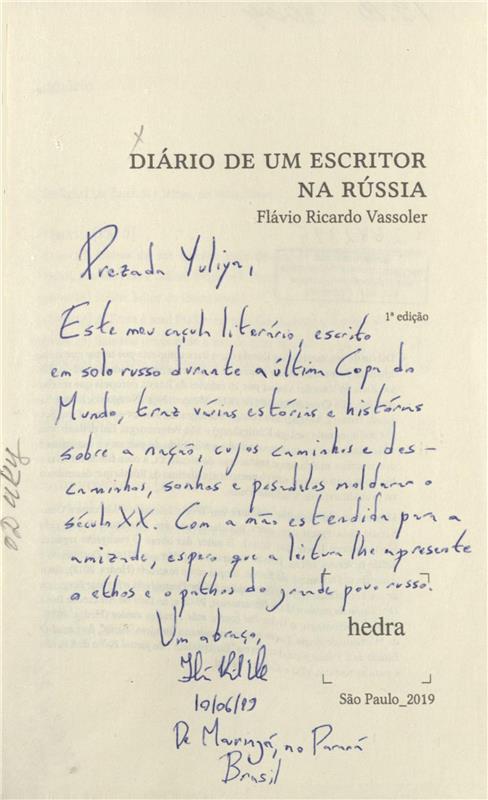 DIÁRIO DE UM ESCRITOR
NA RÚSSIA
Flávio Ricardo Vassoler
Prezada Yuliya,
1ª edição
Este meu caçula literário, escrito
em solo russo durante a última Copa do
Mundo, traz várias estórias e histórias
sobre a nação, cujos caminhos e des-
caminhos, sonhos e pesadelos moldaram o
século XX. Com a mão estendida para a
amizade, espero que a leitura lhe apresente
o ethos e o pathos do grande povo russo.
Um abraço,
hedra
10/06/19
São Paulo_2019
De Maringá, no Paraná
Brasil